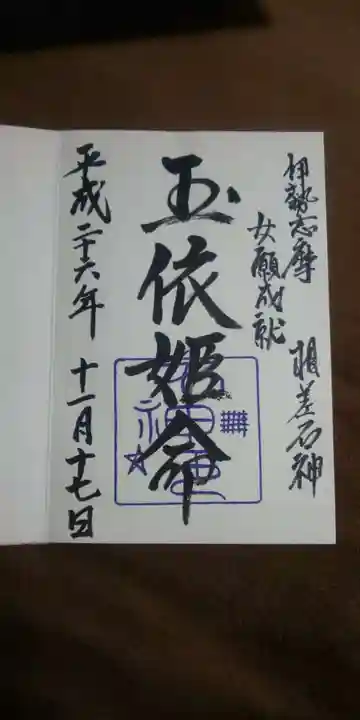 伊勢志摩 相差石神
女願成就
玉依姫命
平成二十六年 十一月十七日